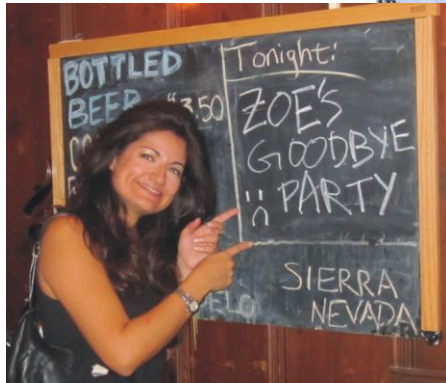 BOTTLED
BEER $3.50
Tonight:
ZOE'S
GOODBYE
PARTY
SIERRA
NEVADA